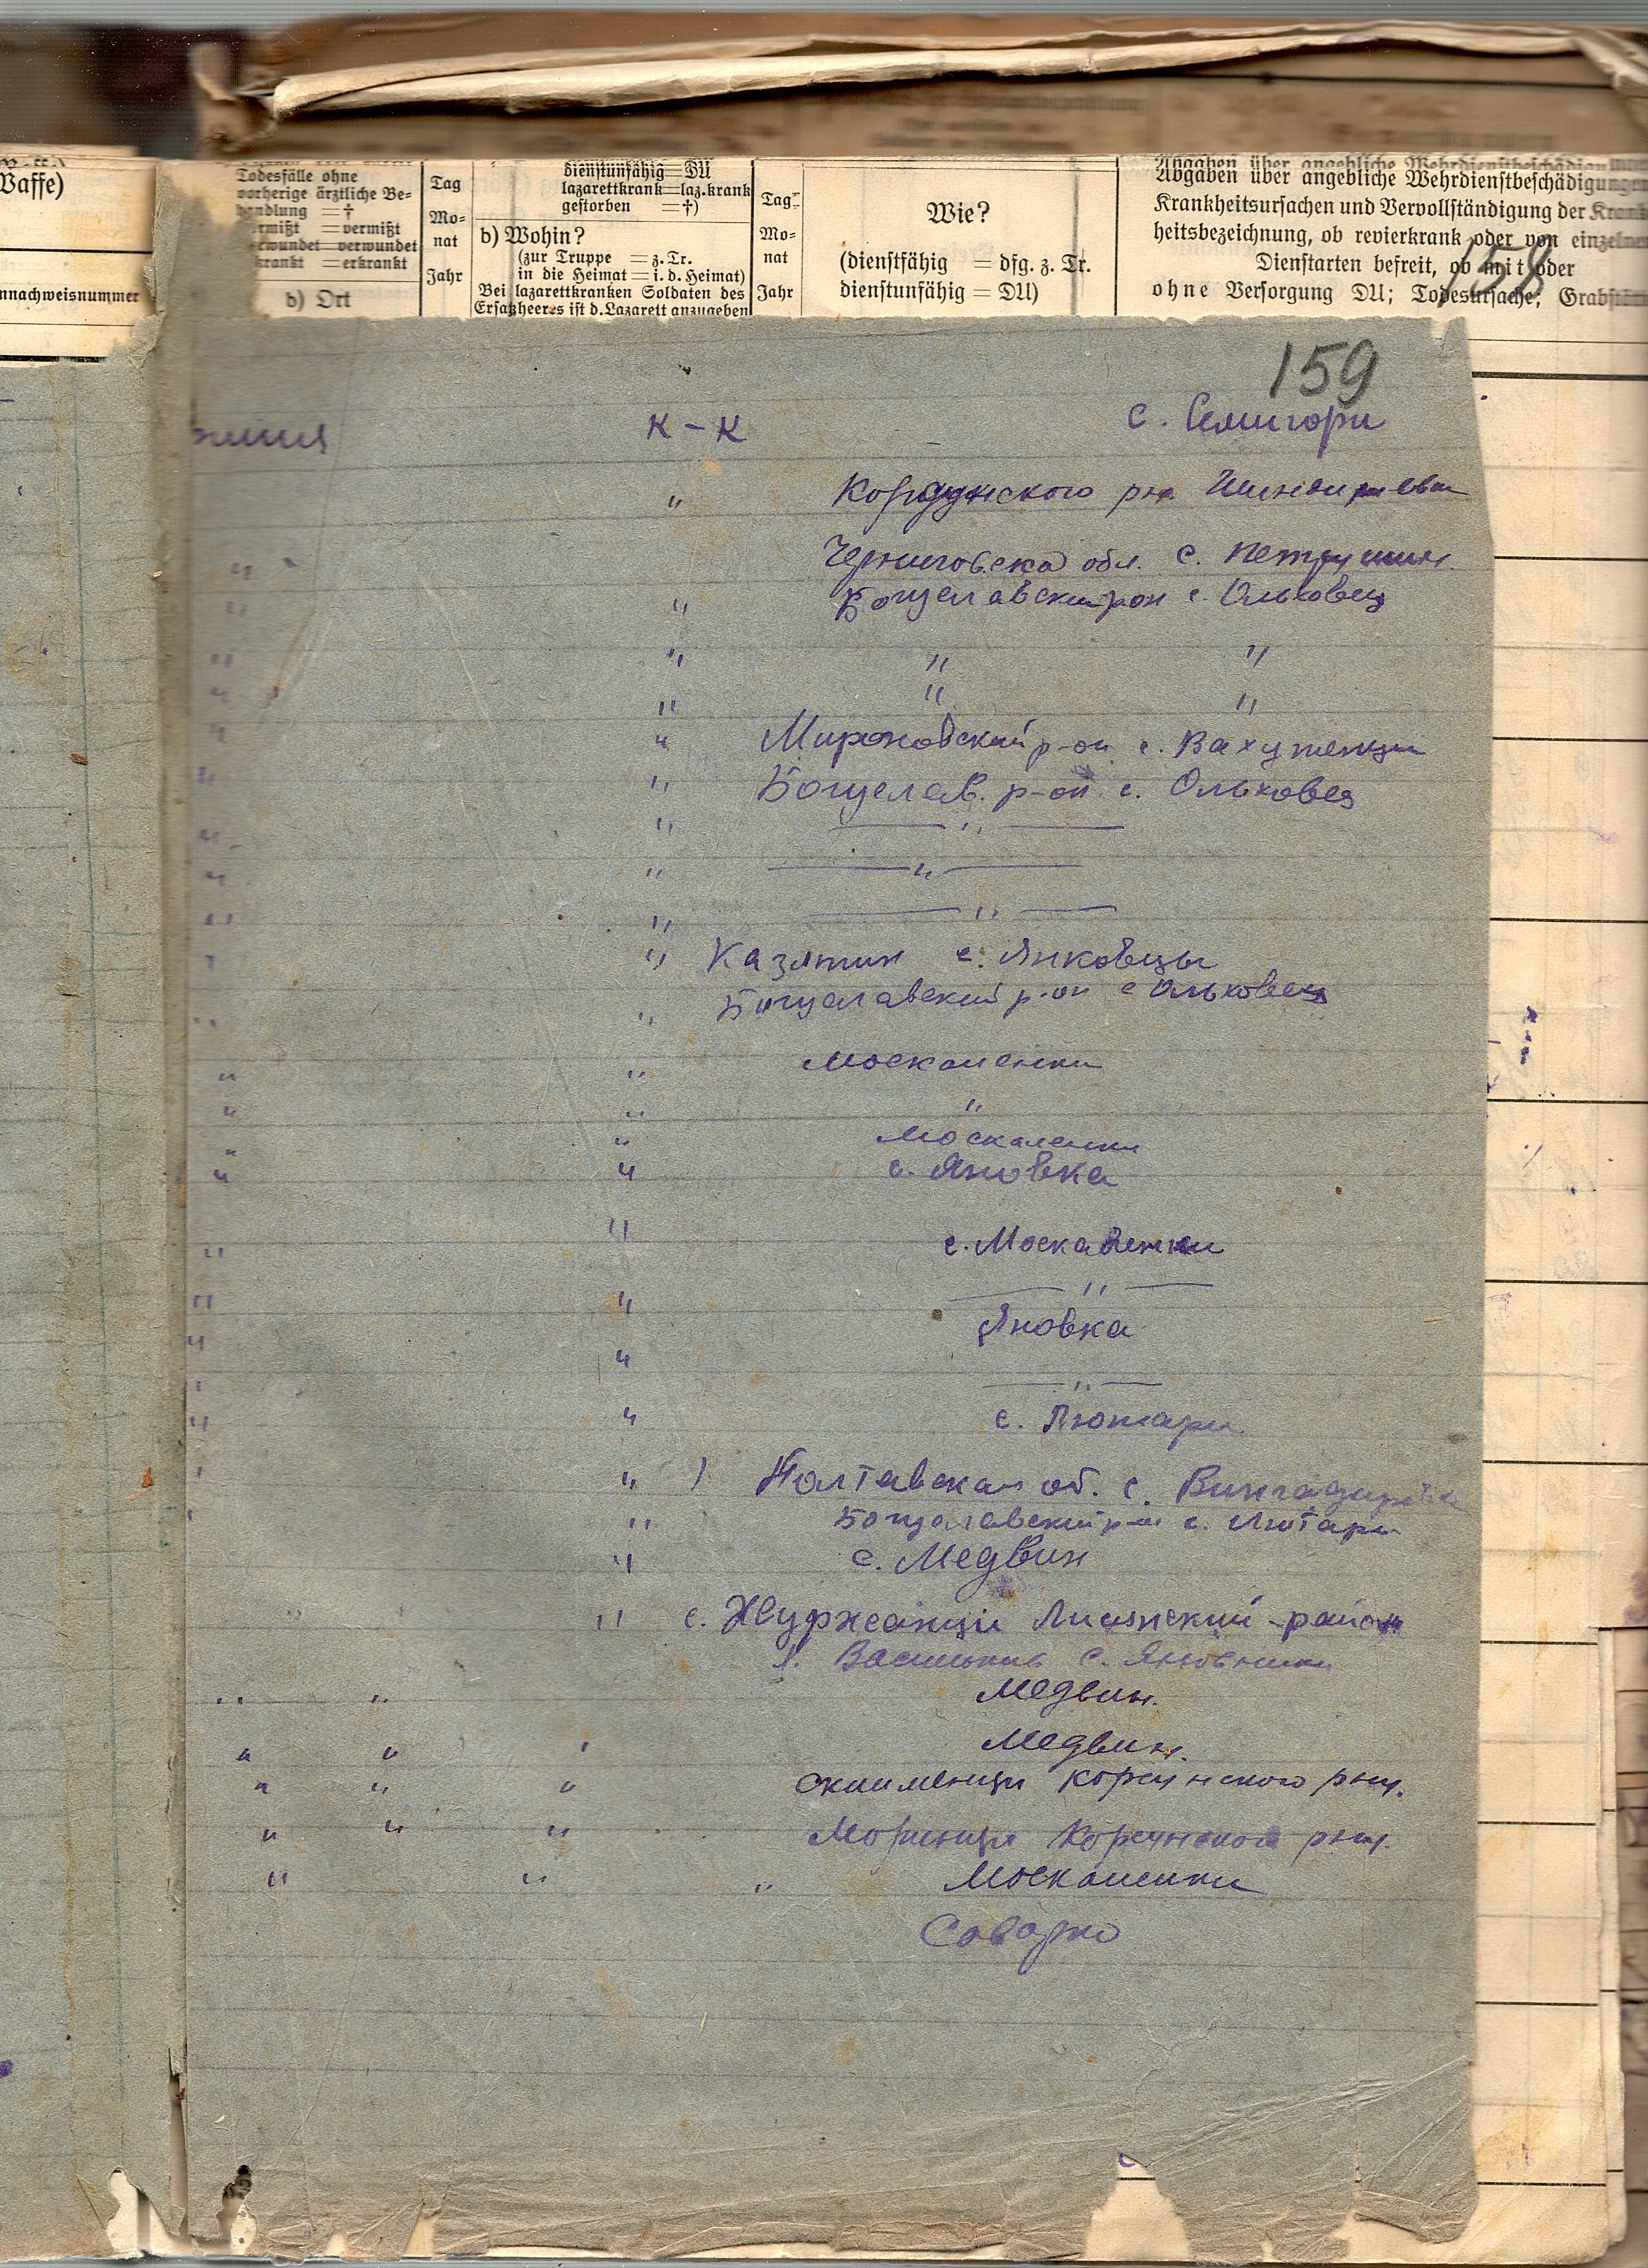 Waffe)
nnachweisnummer
Todesfälle ohne
vorherige ärztliche Be-
handlung = †
vermißt = vermißt
verwundet = verwundet
erkrankt = erkrankt
b) Ort
Tag
Mo-
nat
Jahr
dienstunfähig = DU
lazarettkrank = laz. krank
gestorben = †)
b) Wohin?
(zur Truppe = z. Tr.
in die Heimat = i. d. Heimat)
Bei lazarettkranken Soldaten des
Ersatzheeres ist d. Lazarett anzugeben
Tag
Mo-
nat
Jahr
Wie?
(dienstfähig = dfg. z. Tr.
dienstunfähig = DU)
Angaben über angebliche Wehrdienstbeschädigung
Krankheitsursachen und Vervollständigung der Krank
heitsbezeichnung, ob revierkrank oder von einzelnen
Dienstarten befreit, ob mit oder
ohne Versorgung DU; Todesursache; Grabstä
158
159
К - К с. Семигори
" р-на
Черниговска обл. с. Петрушин
" Богуславский р-он с. Ольховец
" " "
" " "
" Мироновский р-он с.
" Богуслав. р-он с. Ольховец
" — " —
" — " —
" — " —
" Казятин с. Янковцы
" Богуславский р-он с Ольховец
" Москаленки
" "
" Москаленки
" с. Яновка
" с. Москаленки
" — " —
" Яновка
" — " —
" с. Лютари
" Полтавская об. с.
" Богуславский р-он с. Лютари
" с. Медвин
" с. Журжанци Лисянский - район
с.
" " Медвин.
" " ' Медвин.
" " " Корсунского р-ну.
" " " Моринци Корсунского р-ну.
" " " Москаленки
Саварко